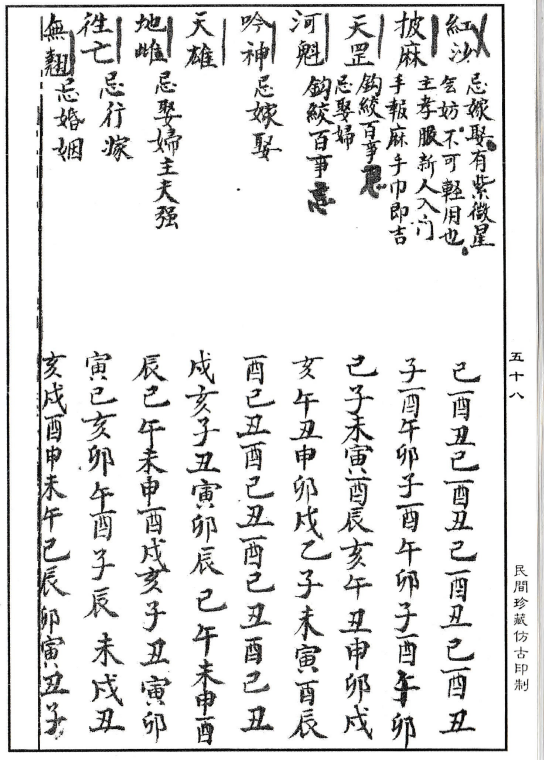 五十八
民間珍藏仿古印制
紅沙 忌嫁娶有紫微星
㑹妨不可輕用也 巳酉丑巳酉丑巳酉丑巳酉丑
披麻 主孝服新人入门
手報麻手巾即吉 子酉午卯子酉午卯子酉午卯
天罡 鈎絞百事忌
忌娶婦 巳子未寅酉辰亥午丑申卯戌
河魁 鈎絞百事忌 亥午丑申卯戌乙子未寅酉辰
吟神 忌嫁娶 酉巳丑酉巳丑酉巳丑酉巳丑
天雄 戌亥子丑寅卯辰巳午未申酉
地雌 忌娶婦主夫强 辰巳午未申酉戌亥子丑寅卯
徃亡 忌行嫁 寅巳亥卯午酉子辰未戌丑
無翹 忌婚姻 亥戌酉申未午巳辰卯寅丑子